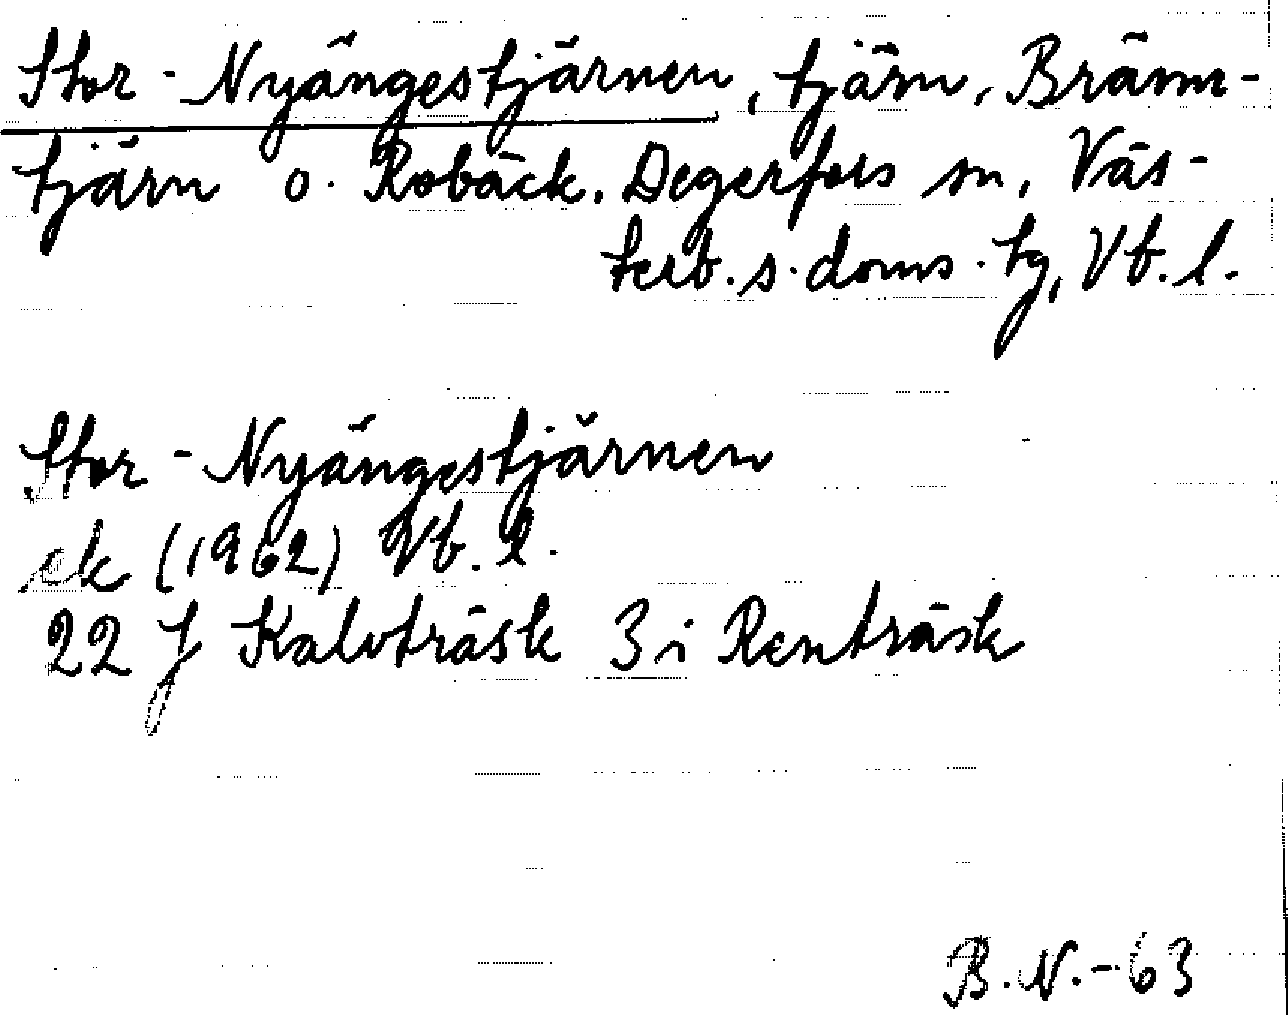 Stor-Nyängestjärnen, tjärn, Bränn-
tjärn o. Robäck. Degerfors sn, Väs-
terb. s. doms. tg, Vb. l.
Stor-Nyängestjärnen
ek (1962) Vb. l.
22 J Kalvträsk 3 i Renträsk
B.N.-63